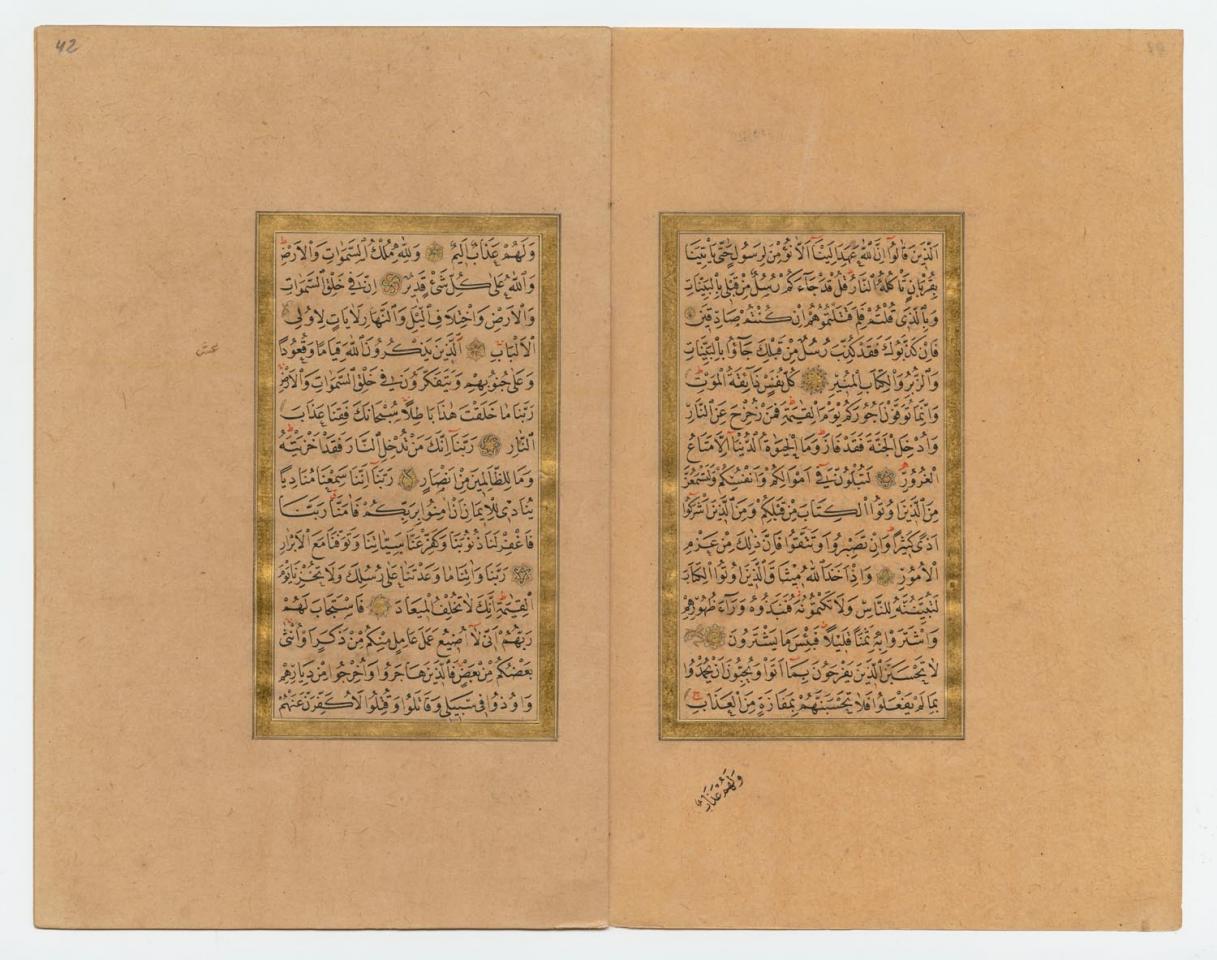 اَلَّذٖينَ قَالُٓوا اِنَّ اللّٰهَ عَهِدَ اِلَيْنَٓا اَلَّا نُؤْمِنَ لِرَسُولٍ حَتّٰى يَاْتِيَنَا
بِقُرْبَانٍ تَاْكُلُهُ النَّارُ قُلْ قَدْ جَٓاءَكُمْ رُسُلٌ مِنْ قَبْلٖى بِالْبَيِّنَاتِ
وَبِالَّذٖى قُلْتُمْ فَلِمَ قَتَلْتُمُوهُمْ اِنْ كُنْتُمْ صَادِقٖينَ
فَاِنْ كَذَّبُوكَ فَقَدْ كُذِّبَ رُسُلٌ مِنْ قَبْلِكَ جَٓاؤُا بِالْبَيِّنَاتِ
وَالزُّبُرِ وَالْكِتَابِ الْمُنٖيرِ كُلُّ نَفْسٍ ذَٓائِقَةُ الْمَوْتِ
وَاِنَّمَا تُوَفَّوْنَ اُجُورَكُمْ يَوْمَ الْقِيٰمَةِ فَمَنْ زُحْزِحَ عَنِ النَّارِ
وَاُدْخِلَ الْجَنَّةَ فَقَدْ فَازَ وَمَا الْحَيٰوةُ الدُّنْيَٓا اِلَّا مَتَاعُ
الْغُرُورِ لَتُبْلَوُنَّ فٖٓى اَمْوَالِكُمْ وَاَنْفُسِكُمْ وَلَتَسْمَعُنَّ
مِنَ الَّذٖينَ اُوتُوا الْكِتَابَ مِنْ قَبْلِكُمْ وَمِنَ الَّذٖينَ اَشْرَكُٓوا
اَذًى كَثٖيرًا وَاِنْ تَصْبِرُوا وَتَتَّقُوا فَاِنَّ ذٰلِكَ مِنْ عَزْمِ
الْاُمُورِ وَاِذْ اَخَذَ اللّٰهُ مٖيثَاقَ الَّذٖينَ اُوتُوا الْكِتَابَ
لَتُبَيِّنُنَّهُ لِلنَّاسِ وَلَا تَكْتُمُونَهُ فَنَبَذُوهُ وَرَٓاءَ ظُهُورِهِمْ
وَاشْتَرَوْا بِهٖ ثَمَنًا قَلٖيلًا فَبِئْسَ مَا يَشْتَرُونَ
لَا تَحْسَبَنَّ الَّذٖينَ يَفْرَحُونَ بِمَٓا اَتَوْا وَيُحِبُّونَ اَنْ يُحْمَدُوا
بِمَا لَمْ يَفْعَلُوا فَلَا تَحْسَبَنَّهُمْ بِمَفَازَةٍ مِنَ الْعَذَابِ
وَلَهُمْ عَذَابٌ
42
وَلَهُمْ عَذَابٌ اَلٖيمٌ وَلِلّٰهِ مُلْكُ السَّمٰوَاتِ وَالْاَرْضِ
وَاللّٰهُ عَلٰى كُلِّ شَیْءٍ قَدٖيرٌ اِنَّ فٖى خَلْقِ السَّمٰوَاتِ
وَالْاَرْضِ وَاخْتِلَافِ الَّيْلِ وَالنَّهَارِ لَاٰيَاتٍ لِاُولِى
الْاَلْبَابِ اَلَّذٖينَ يَذْكُرُونَ اللّٰهَ قِيَامًا وَقُعُودًا
وَعَلٰى جُنُوبِهِمْ وَيَتَفَكَّرُونَ فٖى خَلْقِ السَّمٰوَاتِ وَالْاَرْضِ
رَبَّنَا مَا خَلَقْتَ هٰذَا بَاطِلًا سُبْحَانَكَ فَقِنَا عَذَابَ
النَّارِ رَبَّنَٓا اِنَّكَ مَنْ تُدْخِلِ النَّارَ فَقَدْ اَخْزَيْتَهُ
وَمَا لِلظَّالِمٖينَ مِنْ اَنْصَارٍ رَبَّنَٓا اِنَّنَا سَمِعْنَا مُنَادِيًا
يُنَادٖى لِلْاٖيمَانِ اَنْ اٰمِنُوا بِرَبِّكُمْ فَاٰمَنَّا رَبَّنَا
فَاغْفِرْ لَنَا ذُنُوبَنَا وَكَفِّرْ عَنَّا سَيِّـَٔاتِنَا وَتَوَفَّنَا مَعَ الْاَبْرَارِ
رَبَّنَا وَاٰتِنَا مَا وَعَدْتَنَا عَلٰى رُسُلِكَ وَلَا تُخْزِنَا يَوْمَ
الْقِيٰمَةِ اِنَّكَ لَا تُخْلِفُ الْمٖيعَادَ فَاسْتَجَابَ لَهُمْ
رَبُّهُمْ اَنّٖى لَٓا اُضٖيعُ عَمَلَ عَامِلٍ مِنْكُمْ مِنْ ذَكَرٍ اَوْ اُنْثٰى
بَعْضُكُمْ مِنْ بَعْضٍ فَالَّذٖينَ هَاجَرُوا وَاُخْرِجُوا مِنْ دِيَارِهِمْ
وَاُوذُوا فٖى سَبٖيلٖى وَقَاتَلُوا وَقُتِلُوا لَاُكَفِّرَنَّ عَنْهُمْ